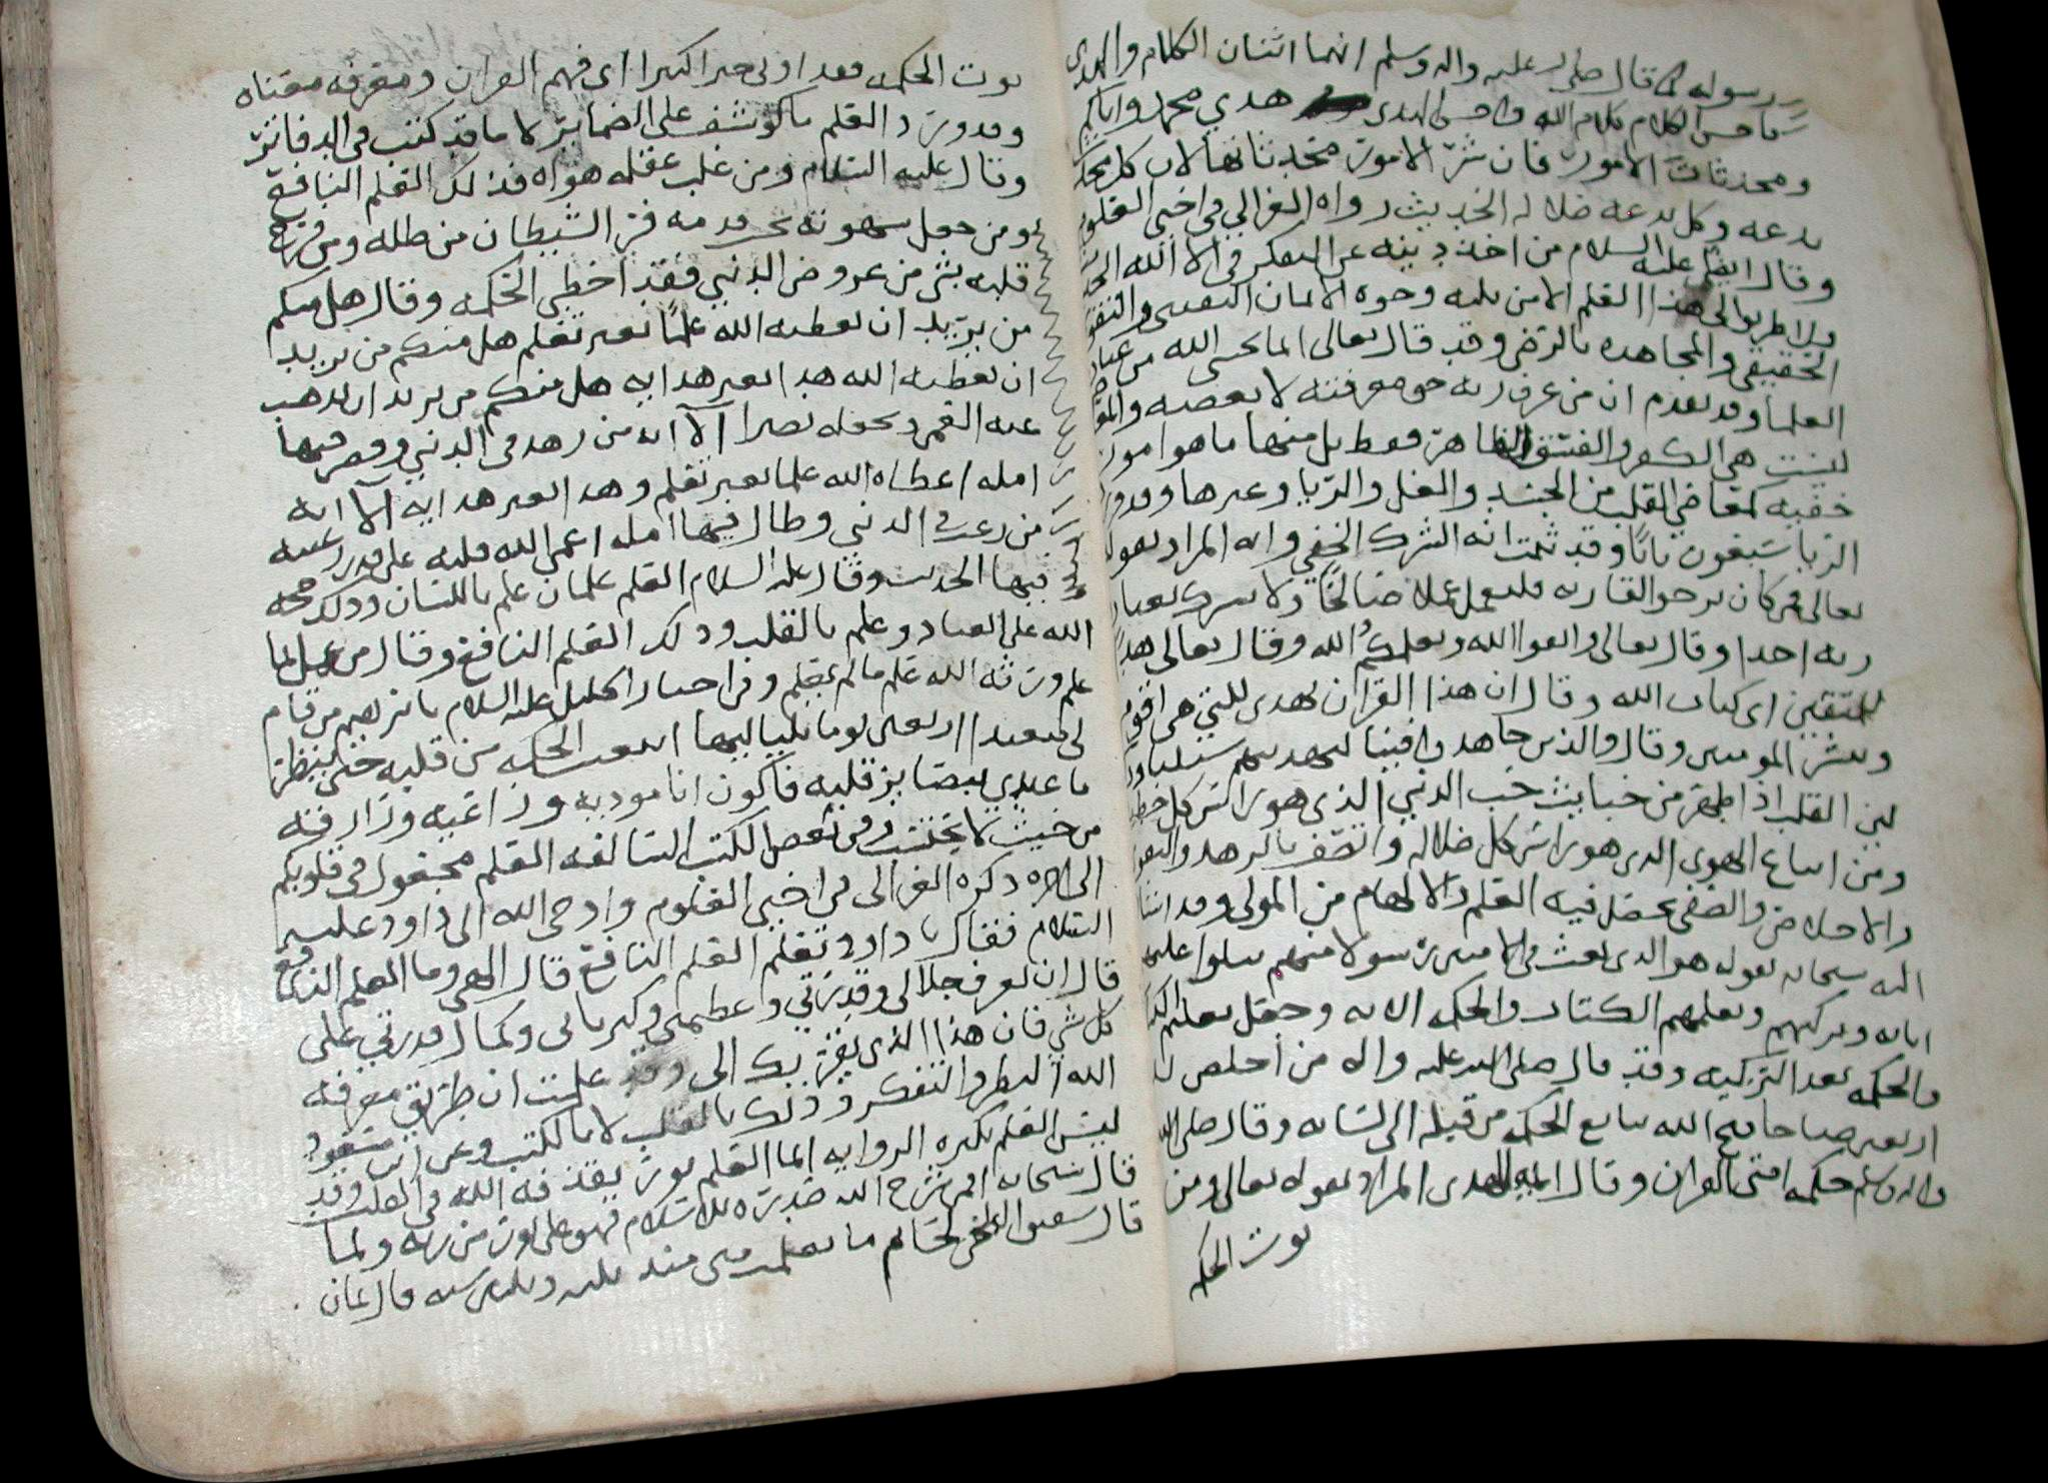 رسوله كما قال صلى الله عليه واله وسلم انما اثنان الكلام والهدى
فاحسن الكلام كلام الله واحسن الهدى هدي محمد واياكم
ومحدثات الامور فان شر الامور محدثاتها لان كل محد
بدعه وكل بدعه ضلاله الحديث رواه الغزالي في احيى العلوم
وقال ايضا عليه السلام من اخذ دينه عن التفكر في الا الله الخ
ولا طريق الى هذا العلم الا من قلبه وحوه الايمان اليقيني والتقو
الحقيقي والمجاهده بالرضى وقد قال تعالى انما يخشى الله من عباد
العلما وقد تقدم ان من عرف ربه حق معرفته لا يعصيه والمعا
ليست هي الكفر والفسق الظاهر فقط بل منها ما هو امور
خفيه كمعاصي القلب من الحسد والغل والريا وغيرها وورد
الريا سبعون بابا وقد ثبت انه الشرك الخفي وانه المراد بقوله
تعالى فمن كان يرجو لقا ربه فليعمل عملا صالحا ولا يشرك بعباد
ربه احدا وقال تعالى واتقوا الله ويعلمكم الله وقال تعالى هدًى
للمتقين اي كتاب الله وقال ان هذا القران يهدي للتي هي اقوم
ويبشر المومنين وقال والذين جاهدوا فينا لنهدينهم سبلنا
لين القلب اذا طهر من خبايث حب الدنيى الذي هو راس كل خطيـ
ومن اتباع الهوى الذي هو راس كل ضلاله واتصف بالزهد والتقو
والاخلاص والصفى يحصل فيه العلم والالهام من المولى وقد اثنا
الله سبحانه بقوله هو الذي بعث في الاميين رسولا منهم يتلوا عليهم
اياته ويزكيهم ويعلمهم الكتاب والحكمه الايه وجعل تعليم الكتا
والحكمه بعد التزكيه وقد قال صلى الله عليه واله من اخلص لله
اربعين صباحا فتح الله ينابيع الحكمه من قلبه الى لسانه وقال صلى الله
واله وسلم حكمه امتى القران وقال المراد بقوله تعالى ومن
يوت الحكمه
يوت الحكمه فقد اوتي خيرا كثيرا اي فهم القران ومعرفه معناه
وقد ورد العلم ما كوشف على الضماير لا ما قد كتب في الدفاتر
وقال عليه السلام ومن غلب عقله هواه فذلك العلم النافع
ومن جعل شهوته تحت قدمه فر الشيطان من ظله ومن فرح
قلبه بشي من عروض الدنيى فقد اخطى الحكمه وقال هل منكم
من يريد ان يعطيه الله علما بغير تعلم هل منكم من يريد
ان يعطيه الله هدا بغير هدايه هل منكم من يريد ان يذهب
عنه العمى ويجعله بصيرا آلا انه من زهد في الدنيى وقصر فيها
امله اعطاه الله علما بغير تعلم وهدا بغير هدايه آلا انه
من رغب في الدنيى وطال فيها امله اعمى الله قلبه على قدر رغبته
فيها الحديث وقال عليه السلام العلم علمان علم باللسان وذلك حجه
الله على العباد وعلم بالقلب وذلك العلم النافع وقال من عمل بما
علم ورثه الله علم ما لم يعلم وفي اخبار الخليل عليه السلام من قام
لي اربعين يوما بلياليها انبعث الحكمه من قلبه حتى ينظر
ما عبدي قلبه فاكون انا موديه وراعيه وزارقه
من حيث لا يحتسب وفي بعض الكتب السالفه العلم مجعول في قلوبكم
الى اخره ذكره الغزالي في احيى العلوم واوحى الله الى داود عليه
السلام فقال يا داود تعلم العلم النافع قال الهي وما العلم النافع
قال ان تعرف جلالي وقدرتي وعظمتي وكبريائي وكمال قدرتي على
كل شي فان هذا الذي يقربك الي وقد علمت ان طريق معرفه
الله النظر والتفكر وذلك بالقلب لا بالكتب وعن ابن مسعود
ليس العلم بكثره الروايه انما العلم نور يقذفه الله في القلب وقد
قال سبحانه افمن شرح الله صدره للاسلام فهو على نور من ربه ولما
قال ما تعلمت مني منذ قال ثمان